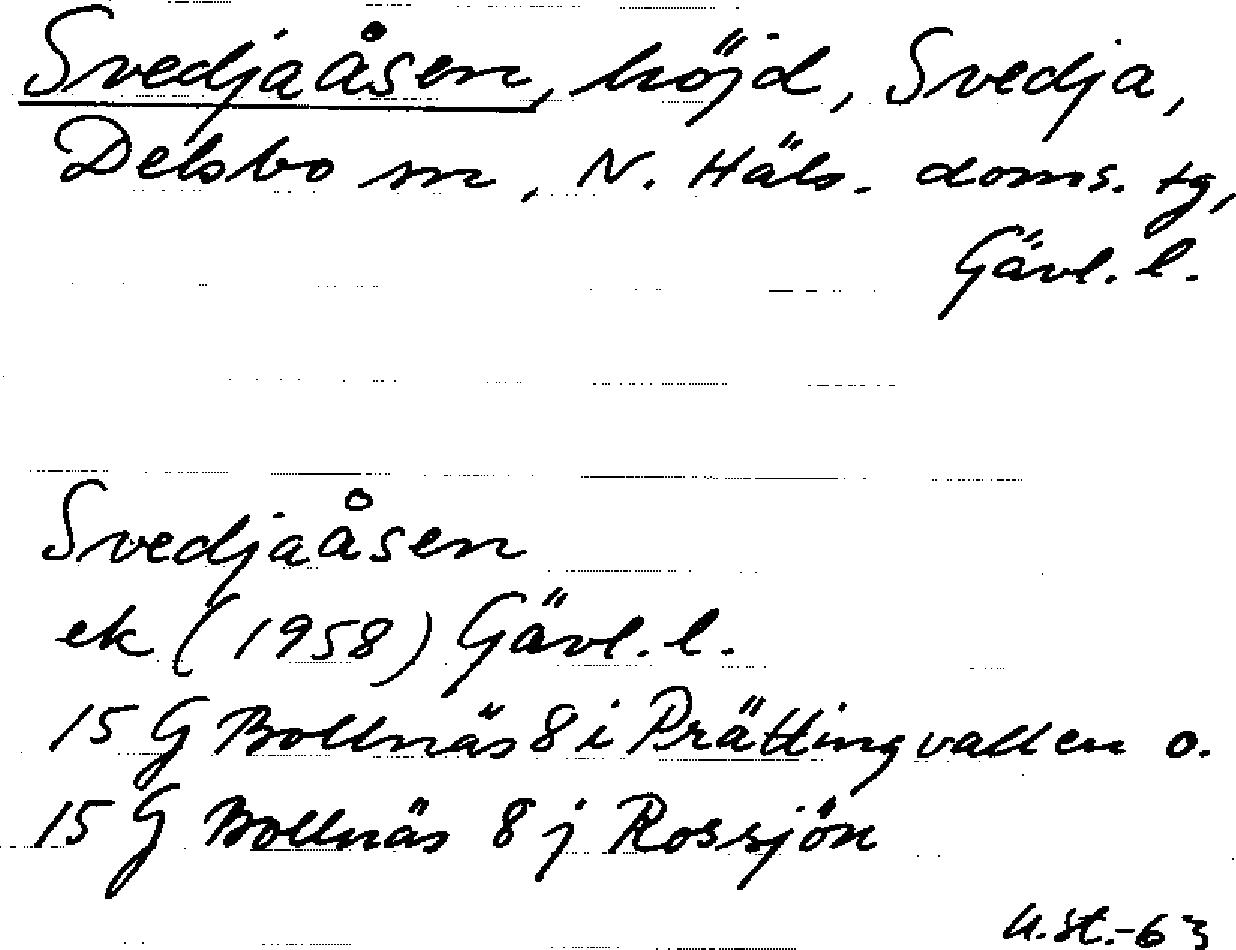 Svedjaåsen, höjd, Svedja,
Delsbo sn, N. Häls. doms. tg,
Gävl. l.
Svedjaåsen
ek (1958) Gävl. l.
15 G Bollnäs 8 i Prättingvallen o.
15 G Bollnäs 8 j Rossjön
U.St.-63